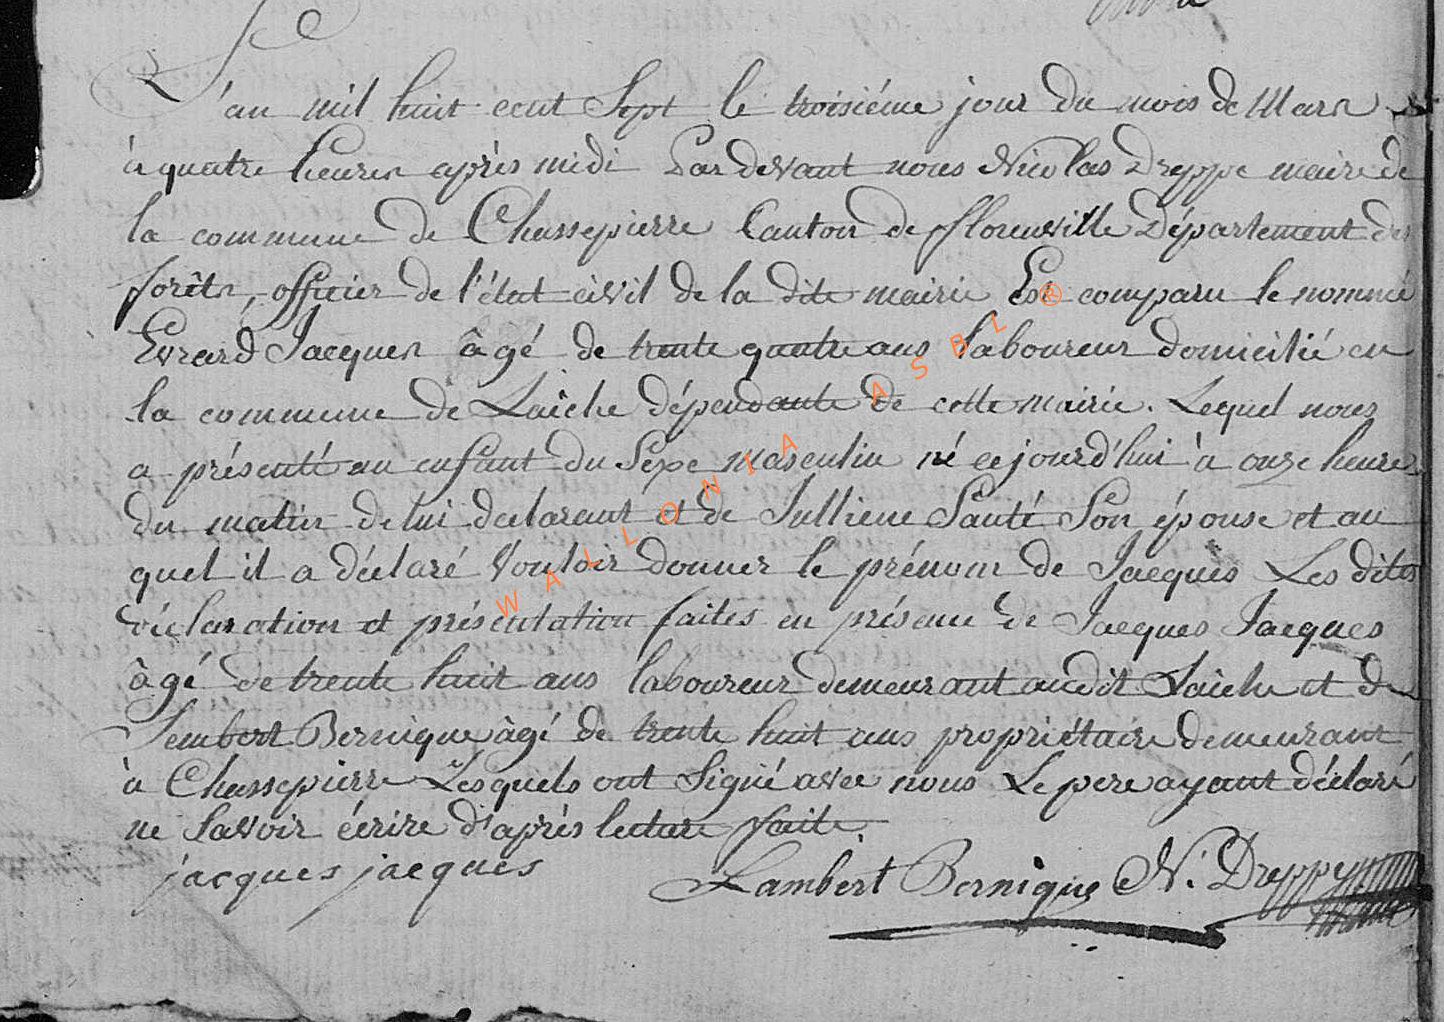 L'an mil huit cent Sept le troisiéme jour du mois de Mars
à quatre heures après midi Par devant nous Nicolas Dreppe maire de
la commune de Chassepierre Canton de florenville Département des
forêts, officier de l'état civil de la dite mairie Est comparu le nommé
Evrard Jacques âgé de trente quatre ans laboureur domicilié en
la commune de Laiche dépendante de cette mairie. Lequel nous
a présenté un enfant du Sexe masculin né cejourd'hui à onze heures
du matin de lui déclarant et de Julliene Santé Son épouse et au
quel il a déclaré Vouloir donner le prénom de Jacques Les dites
déclaration et présentation faites en présence de Jacques Jacques
âgé de trente huit ans laboureur demeurant audit Laiche et de
Lembert Bernique âgé de trente huit ans propriétaire demeurant
à Chassepierre Lesquels ont Signé avec nous Le pere ayant déclaré
ne Savoir écrire d'après lecture faite.
jacques jacques Lambert Bernique N. Dreppe
WALLONIA ASBL ®